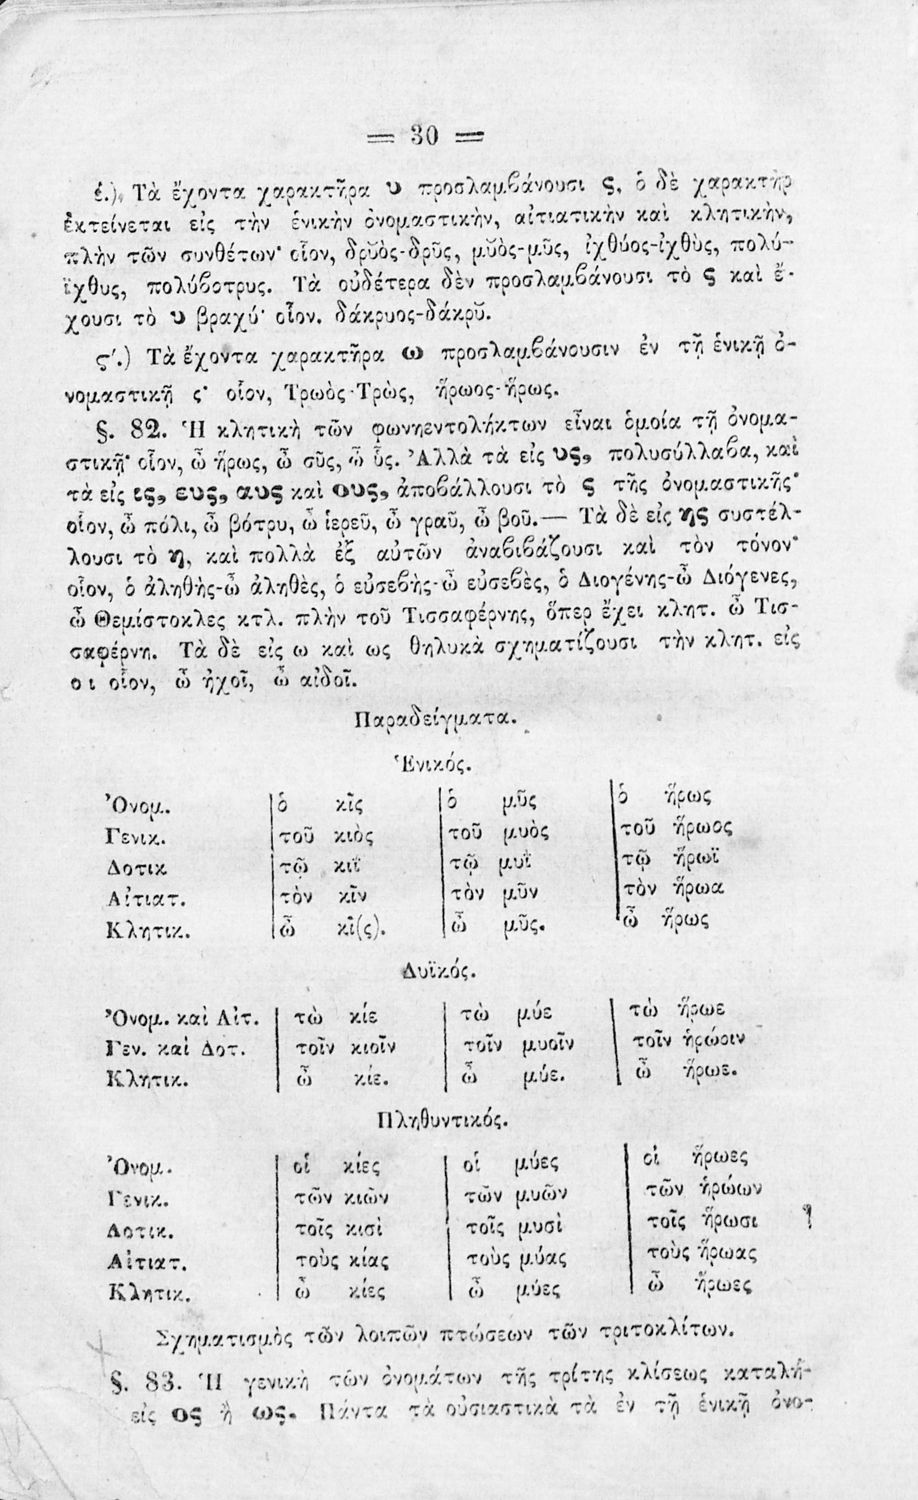 = 30 =
έ.) Τὰ ἔχοντα χαρακτῆρα υ προσλαμβάνουσι ς, ὁ δὲ χαρακτὴρ
ἐκτείνεται εἰς τὴν ἑνικὴν ὀνομαστικὴν, αἰτιατικὴν καὶ κλητικὴν,
πλὴν τῶν συνθέτων· οἷον, δρῠὸς-δρῦς, μῠὸς-μῦς, ἰχθύος-ἰχθὺς, πολύ-
ϊχθυς, πολύβοτρυς. Τὰ οὐδέτερα δὲν προσλαμβάνουσι τὸ ς καὶ ἔ-
χουσι τὸ υ βραχύ· οἷον. δάκρυος-δάκρῠ.
ς΄.) Τὰ ἔχοντα χαρακτῆρα ω προσλαμβάνουσιν ἐν τῇ ἑνικῇ ὀ-
νομαστικῇ ς· οἷον, Τρωὸς-Τρὼς, ἥρωος-ἥρως.
§. 82. Ἡ κλητικὴ τῶν φωνηεντολήκτων εἶναι ὁμοία τῇ ὀνομα-
στικῇ· οἷον, ὦ ἥρως, ὦ σῦς, ὦ ὗς. Ἀλλὰ τὰ εἰς υς, πολυσύλλαβα, καὶ
τὰ εἰς ις, ευς, αυς καὶ ους, ἀποβάλλουσι τὸ ς τῆς ὀνομαστικῆς·
οἷον, ὦ πόλι, ὦ βότρυ, ὦ ἱερεῦ, ὦ γραῦ, ὦ βοῦ.— Τὰ δὲ εἰς ης συστέλ-
λουσι τὸ η, καὶ πολλὰ ἐξ αὐτῶν ἀναβιβάζουσι καὶ τὸν τόνον·
οἷον, ὁ ἀληθὴς-ὦ ἀληθὲς, ὁ εὐσεβὴς-ὦ εὐσεβὲς, ὁ Διογένης-ὦ Διόγενες,
ὦ Θεμίστοκλες κτλ. πλὴν τοῦ Τισσαφέρνης, ὅπερ ἔχει κλητ. ὦ Τισ-
σαφέρνη. Τὰ δὲ εἰς ω καὶ ως θηλυκὰ σχηματίζουσι τὴν κλητ. εἰς
οι οἷον, ὦ ἠχοῖ, ὦ αἰδοῖ.
Παραδείγματα.
Ἑνικός.
Ὀνομ. ὁ κῖς ὁ μῦς ὁ ἥρως
Γενικ. τοῦ κιὸς τοῦ μυὸς τοῦ ἥρωος
Δοτικ τῷ κιῒ τῷ μυῒ τῷ ἥρωϊ
Αἰτιατ. τὸν κῖν τὸν μῦν τὸν ἥρωα
Κλητικ. ὦ κὶ(ς). ὦ μῦς. ὦ ἥρως
Δυϊκός.
Ὀνομ. καὶ Αἰτ. τὼ κίε τὼ μύε τὼ ἥρωε
Γεν. καὶ Δοτ. τοῖν κιοῖν τοῖν μυοῖν τοῖν ἡρώοιν
Κλητικ. ὦ κίε. ὦ μύε. ὦ ἥρωε.
Πληθυντικός.
Ὀνομ. οἱ κίες οἱ μύες οἱ ἥρωες
Γενικ. τῶν κιῶν τῶν μυῶν τῶν ἡρώων
Δοτικ. τοῖς κισὶ τοῖς μυσὶ τοῖς ἥρωσι
Αἰτιατ. τοὺς κίας τοὺς μύας τοὺς ἥρωας
Κλητικ. ὦ κίες ὦ μύες ὦ ἥρωες
Σχηματισμὸς τῶν λοιπῶν πτώσεων τῶν τριτοκλίτων.
§. 83. Ἡ γενικὴ τῶν ὀνομάτων τῆς τρίτης κλίσεως καταλή-
εἰς ος ἢ ως. Πάντα τὰ οὐσιαστικὰ τὰ ἐν τῇ ἑνικῇ ὀνο-